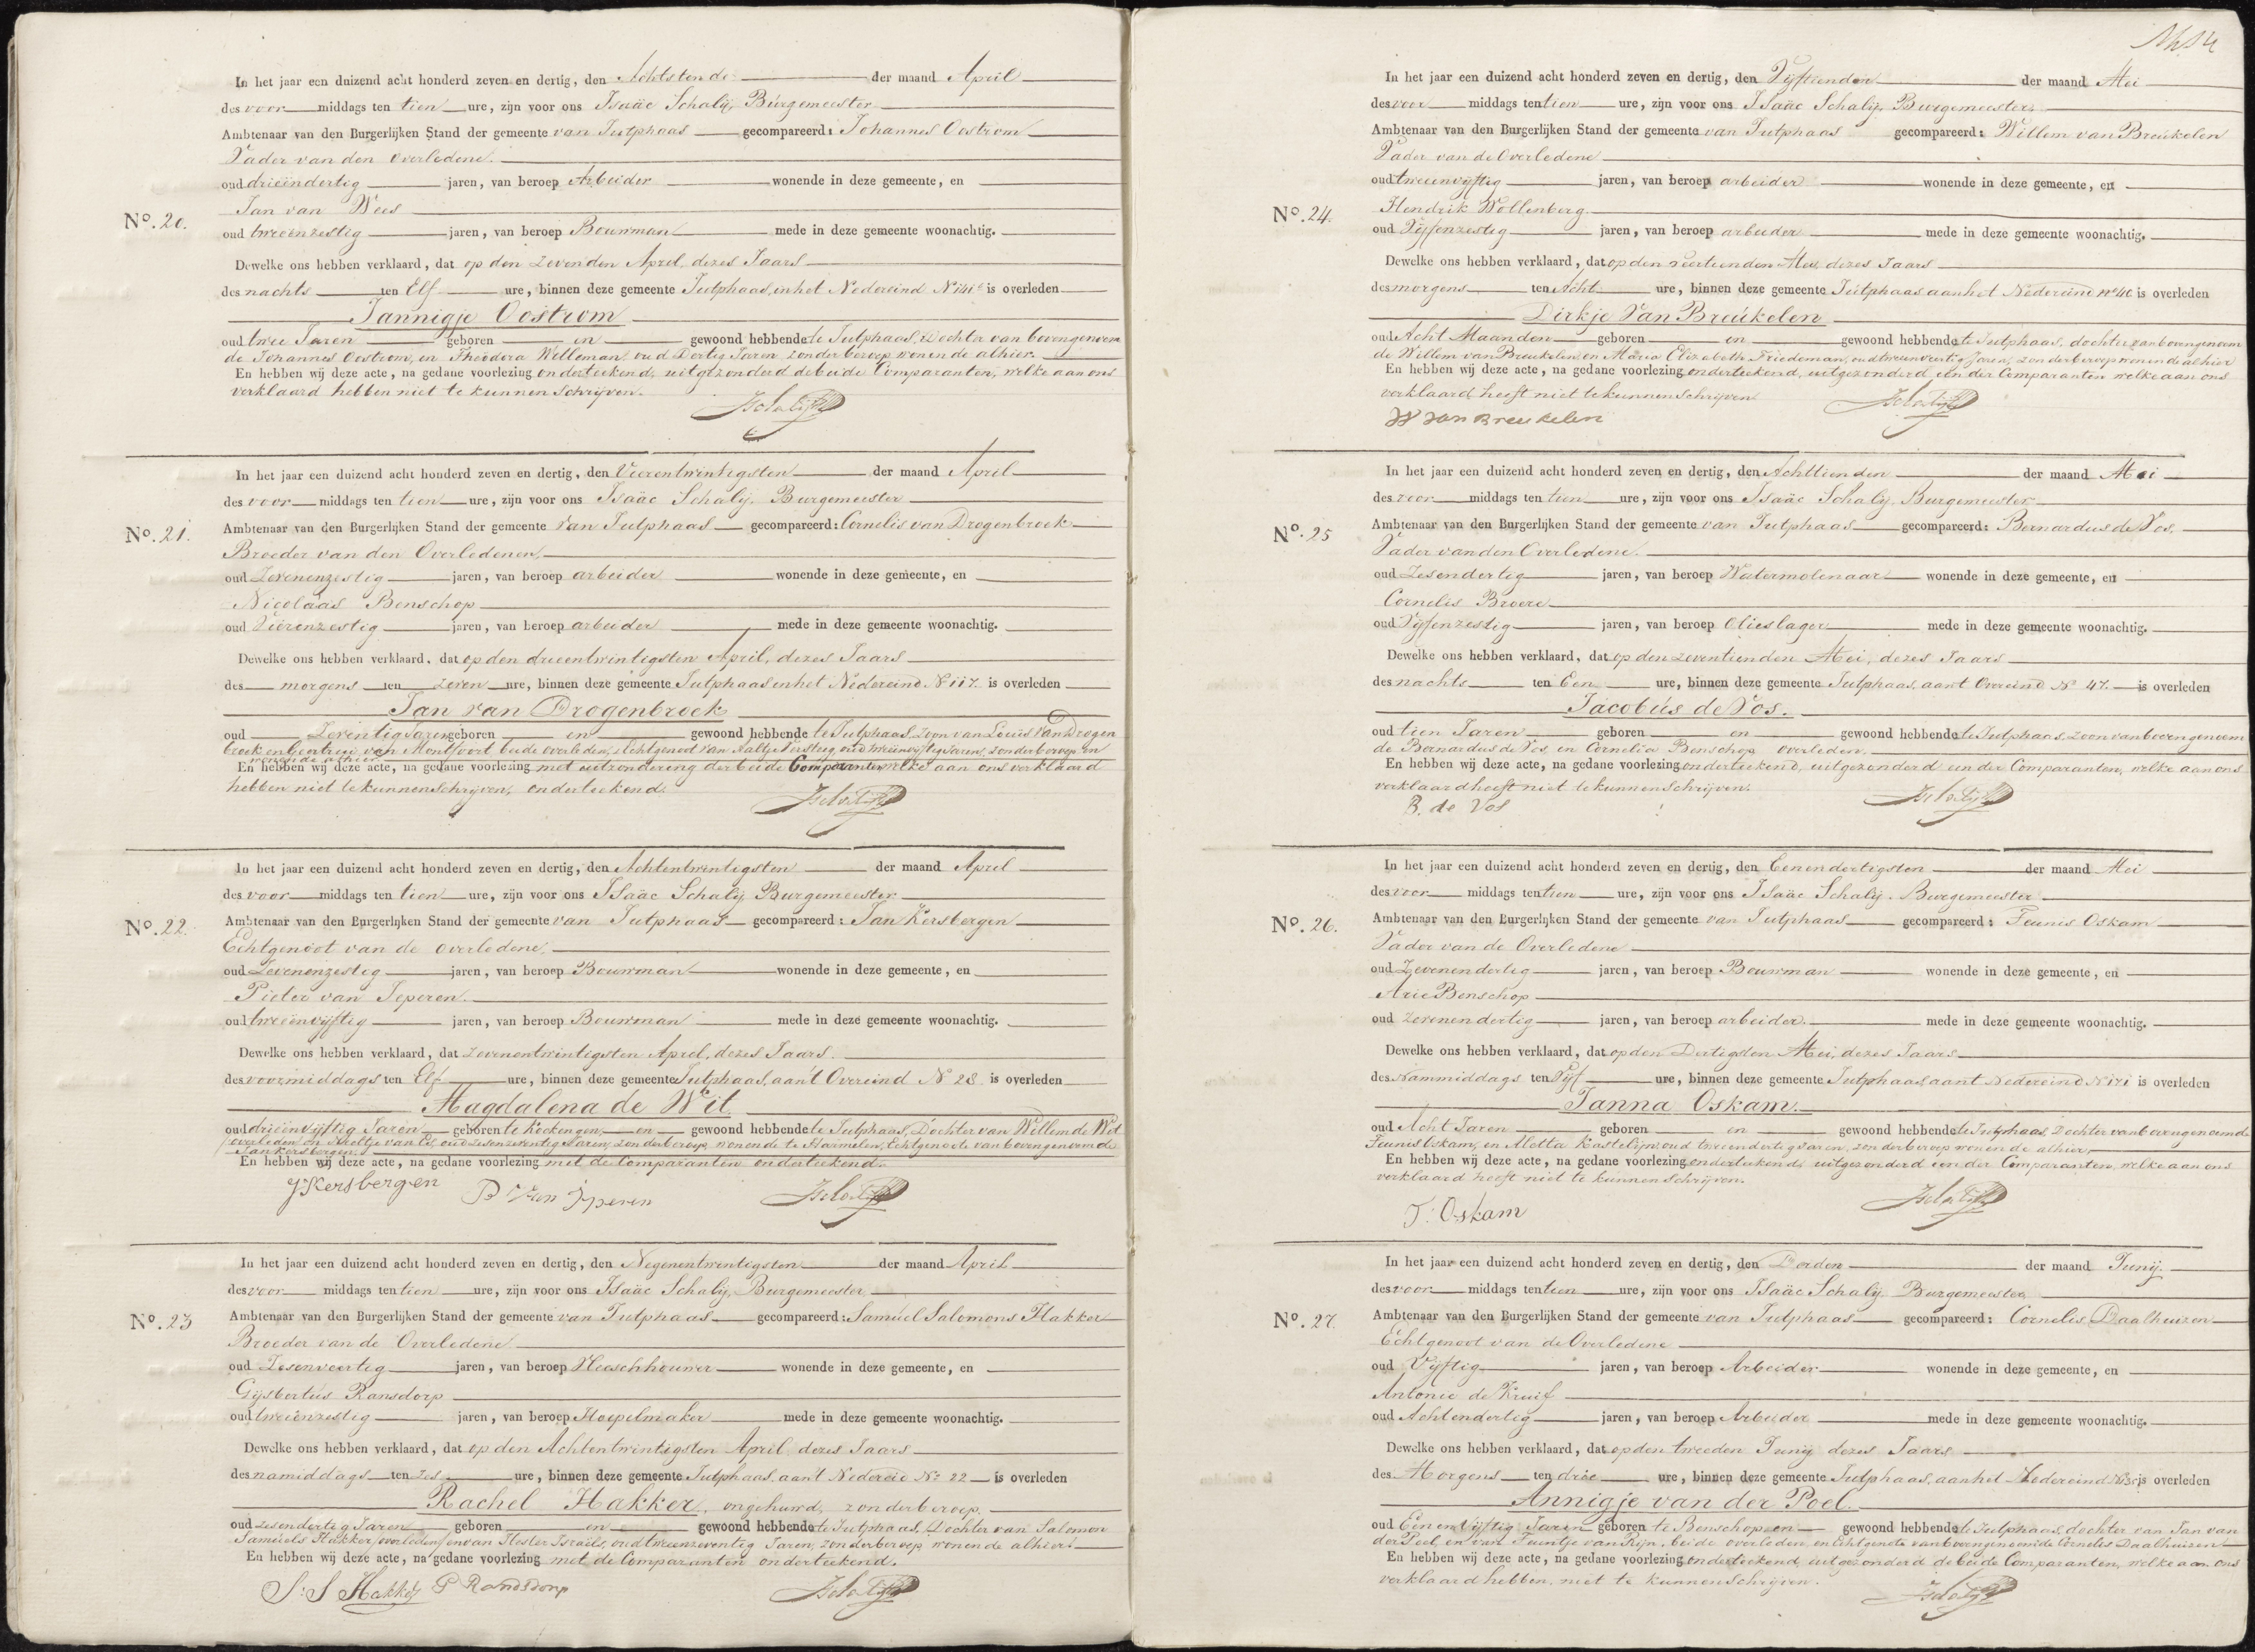 In het jaar een duizend acht honderd zeven en dertig, den Achtsten de der maand April
des voor middags ten tien ure, zijn voor ons Isaäc Schalij, Burgemeester
Ambtenaar van den Burgerlijken Stand der gemeente van Jutphaas gecompareerd: Johannes Oostrom
Vader van den overledene.
oud drieëndertig jaren, van beroep Arbeider wonende in deze gemeente, en
Jan van Wees
No. 20.
oud tweeënzestig jaren, van beroep Bouwman mede in deze gemeente woonachtig.
Dewelke ons hebben verklaard, dat op den zevenden April, dezes Jaars
des nachts ten Elf ure, binnen deze gemeente Jutphaas, in het Nedereind is overleden
Jannigje Oostrom
oud twee Jaren geboren en gewoond hebbende te Jutphaas, Dochter van bovengenoem
de Johannes Oostrom, en Theodora Willeman oud Dertig Jaren zonder beroep wonende alhier.
En hebben wij deze acte, na gedane voorlezing onderteekend, uitgezonderd de beide Comparanten, welke aan ons
verklaard hebben niet te kunnen Schrijven.
JSchalij
In het jaar een duizend acht honderd zeven en dertig, den Vierentwintigsten der maand April
des voor middags ten tien ure, zijn voor ons Isaäc Schalij. Burgemeester
No. 21.
Ambtenaar van den Burgerlijken Stand der gemeente van Jutphaas gecompareerd: Cornelis van Drogenbroek
Broeder van den Overledenen,
oud Zevenenzestig jaren, van beroep arbeider wonende in deze gemeente, en
Nicolaas Benschop
oud Vierenzestig jaren, van beroep arbeider mede in deze gemeente woonachtig.
Dewelke ons hebben verklaard, dat op den drieentwintigsten April, dezes Jaars
des morgens ten zeven ure, binnen deze gemeente Jutphaas in het Nedereind N 117. is overleden
Jan van Drogenbroek
oud Zeventig Jaren geboren en gewoond hebbende te Jutphaas, Zoon van Louis van Drogen
broek en Geertrui van Montfoort beide overleden, Echtgenoot van Aaltje Versteeg, oud tweeënvijftig Jaren, zonder beroep en
wonende alhier
En hebben wij deze acte, na gedane voorlezing met uitzondering der beide Comparanten, welke aan ons verklaard
hebben niet te kunnen schrijven, onderteekend.
JSchalij
In het jaar een duizend acht honderd zeven en dertig, den Achtentwintigsten der maand April
des voor middags ten tien ure, zijn voor ons Isaäc Schalij, Burgemeester
No. 22.
Ambtenaar van den Burgerlijken Stand der gemeente van Jutphaas gecompareerd: Jan Kersbergen
Echtgenoot van de overledene,
oud Zevenenzestig jaren, van beroep Bouwman wonende in deze gemeente, en
Pieter van Jeperen.
oud tweeënvijftig jaren, van beroep Bouwman mede in deze gemeente woonachtig.
Dewelke ons hebben verklaard, dat zevenentwintigsten April, dezes Jaars.
des voormiddags ten Elf ure, binnen deze gemeente Jutphaas, aan't Overeind No 28 is overleden
Magdalena de Wit
oud drieënvijftig Jaren geboren te Kockengen, en gewoond hebbende te Jutphaas, Dochter van Willem de Wit
overleden en Neeltje van Es, oud zesenzeventig Jaren, zonder beroep, wonende te Harmelen, Echtgenoote van bovengenoemde
Jan Kersbergen.
En hebben wij deze acte, na gedane voorlezing met de Comparanten onderteekend.
J Kersbergen P van Jperen JSchalij
In het jaar een duizend acht honderd zeven en dertig, den Negenentwintigsten der maand April
des voor middags ten tien ure, zijn voor ons Isaäc Schalij, Burgemeester,
No. 23
Ambtenaar van den Burgerlijken Stand der gemeente van Jutphaas gecompareerd: Samuel Salomons Hakker
Broeder van de Overledene
oud Zesenveertig jaren, van beroep Vleeschhouwer wonende in deze gemeente, en
Gijsbertus Ransdorp
oud tweeënzestig jaren, van beroep Hoepelmaker mede in deze gemeente woonachtig.
Dewelke ons hebben verklaard, dat op den Achtentwintigsten April dezes Jaars
des namiddags ten zes ure, binnen deze gemeente Jutphaas, aan't Nedereid No 22 is overleden
Rachel Hakker, ongehuwd, zonder beroep,
oud zesendertig Jaren geboren en gewoond hebbende te Jutphaas, Dochter van Salomon
Samuels Hakker, overleden, en van Hester Israëls, oud tweenzeventig Jaren, zonder beroep wonende alhier.
En hebben wij deze acte, na gedane voorlezing met de Comparanten onderteekend.
S: S Hakker G Randsdorp JSchalij
In het jaar een duizend acht honderd zeven en dertig, den Vijftienden der maand Mei
des voor middags ten tien ure, zijn voor ons Isaäc Schalij, Burgemeester,
Ambtenaar van den Burgerlijken Stand der gemeente van Jutphaas gecompareerd: Willem van Breukelen
Vader van de Overledene
oud tweeenvijftig jaren, van beroep arbeider wonende in deze gemeente, en
No. 24.
Hendrik Wollenberg.
oud Vijfenzestig jaren, van beroep arbeider mede in deze gemeente woonachtig.
Dewelke ons hebben verklaard, dat op den veertienden Mei, dezes Jaars
des morgens ten Acht ure, binnen deze gemeente Jutphaas aan het Nedereind no 46 is overleden
Dirkje Van Breukelen
oud Acht Maanden geboren en gewoond hebbende te Jutphaas, dochter van bovengenoem
de Willem van Breukelen en Maria Elizabeth Friedeman, oud tweenveertig Jaren, zonder beroep wonende alhier
En hebben wij deze acte, na gedane voorlezing onderteekend, uitgezonderd een der Comparanten welke aan ons
verklaard heeft niet te kunnen schrijven
W van Breukelen JSchalij
In het jaar een duizend acht honderd zeven en dertig, den Achttienden der maand Mei
des voor middags ten tien ure, zijn voor ons Isaäc Schalij, Burgemeester
No. 25
Ambtenaar van den Burgerlijken Stand der gemeente van Jutphaas gecompareerd: Bernardus de Vos.
Vader van den Overledene.
oud Zesendertig jaren, van beroep Watermolenaar wonende in deze gemeente, en
Cornelis Broere
oud Vijfenzestig jaren, van beroep Olieslager mede in deze gemeente woonachtig.
Dewelke ons hebben verklaard, dat op den zeventienden Mei, dezes Jaars
des nachts ten Een ure, binnen deze gemeente Jutphaas, aan't Overeind No 47. is overleden
Jacobus de Vos.
oud tien Jaren geboren en gewoond hebbende te Jutphaas, zoon van bovengenoem
de Bernardus de Vos, en Cornelia Benschop overleden.
En hebben wij deze acte, na gedane voorlezing onderteekend, uitgezonderd een der Comparanten, welke aan ons
verklaard heeft niet te kunnen schrijven.
B. de Vos JSchalij
In het jaar een duizend acht honderd zeven en dertig, den Eenendertigsten der maand Mei
des voor middags ten tien ure, zijn voor ons Isaäc Schalij. Burgemeester
No. 26.
Ambtenaar van den Burgerlijken Stand der gemeente van Jutphaas gecompareerd: Teunis Oskam
Vader van de Overledene
oud Zevenendertig jaren, van beroep Bouwman wonende in deze gemeente, en
Arie Benschop
oud zevenendertig jaren, van beroep arbeider. mede in deze gemeente woonachtig.
Dewelke ons hebben verklaard, dat op den Dertigsten Mei, dezes Jaars
des Nammiddags ten Vijf ure, binnen deze gemeente Jutphaas, aant Nedereind N 171 is overleden
Janna Oskam.
oud Acht Jaren geboren en gewoond hebbende te Jutphaas, Dochter van bovengenoemde
Teunis Oskam, en Aletta Kastelijn, oud tweeendertig Jaren, zonder beroep wonende alhier,
En hebben wij deze acte, na gedane voorlezing onderteekend, uitgezonderd een der Comparanten, welke aan ons
verklaard heeft niet te kunnen schrijven.
T: Oskam JSchalij
In het jaar een duizend acht honderd zeven en dertig, den Derden der maand Junij.
des voor middags ten tien ure, zijn voor ons Isaäc Schalij Burgemeester
No. 27.
Ambtenaar van den Burgerlijken Stand der gemeente van Jutphaas gecompareerd: Cornelis Daalhuizen
Echtgenoot van de Overledene
oud Vijftig jaren, van beroep Arbeider wonende in deze gemeente, en
Antonie de Kruif
oud Achtendertig jaren, van beroep Arbeider mede in deze gemeente woonachtig.
Dewelke ons hebben verklaard, dat op den tweeden Junij dezes Jaars
des Morgens ten drie ure, binnen deze gemeente Jutphaas, aan het Nedereind is overleden
Annigje van der Poel.
oud Een en Vijftig Jaren geboren te Benschop en gewoond hebbende te Jutphaas, dochter van Jan van
der Poel, en van Teuntje van Rijn, beide overleden, en Echtgenote van bovengenoemde Cornelis Daalhuizen
En hebben wij deze acte, na gedane voorlezing onderteekend, uitgezonderd de beide Comparanten, welke aan ons
verklaard hebben, niet te kunnen schrijven.
JSchalij